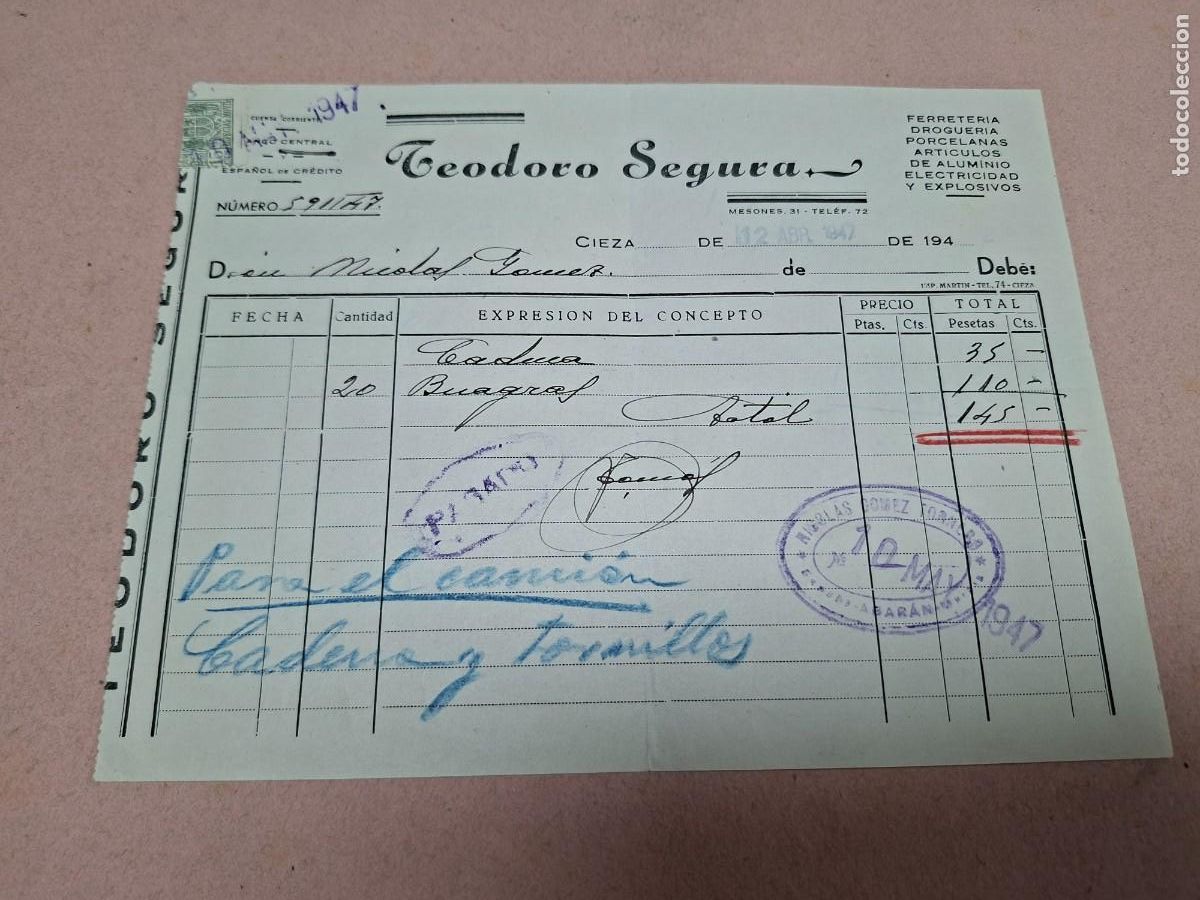 CUENTA CORRIENTE
1947
BANCO CENTRAL
- Y -
ESPAÑOL DE CRÉDITO
NÚMERO 591/47.
Teodoro Segura
MESONES, 31 - TELÉF. 72
FERRETERIA
DROGUERIA
PORCELANAS
ARTICULOS
DE ALUMÍNIO
ELECTRICIDAD
Y EXPLOSIVOS
CIEZA DE 12 ABR. 1947 DE 194
D. Nicolas Gomez. de Debe:
IMP. MARTIN - TEL. 74 - CIEZA
FECHA Cantidad EXPRESION DEL CONCEPTO PRECIO TOTAL
Ptas. Cts. Pesetas Cts.
Cadena 35 -
20 110 -
total 145 -
PAGADO
NICOLAS GOMEZ TORNERO
Nº 10 MAY 1947
ABARÁN
Para el camión
Cadena y tornillos
TEODORO SEGURA
todocoleccion